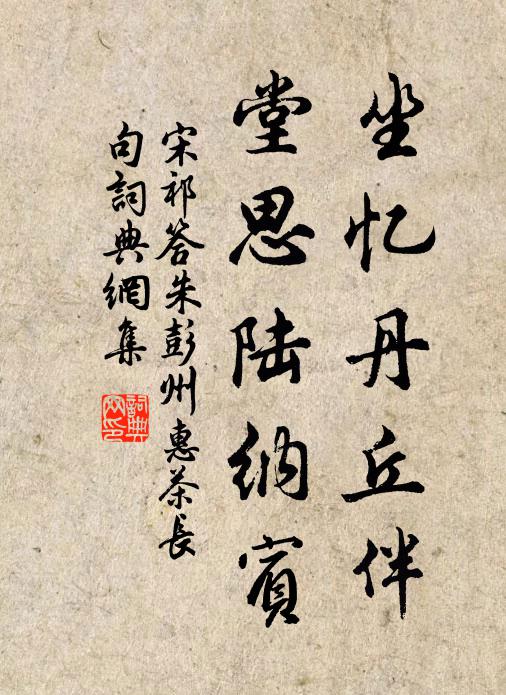 坐忆丹丘伴
堂思陆纳賓
宋祁答朱彭州惠茶長
句詞典網集